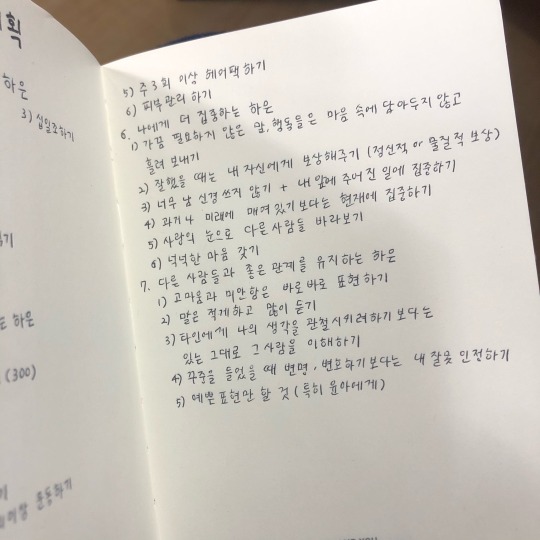 획
하은
3) 십일조하기
하은
(300)
이상 운동하기
5) 주 3회 이상 헤어팩하기
6) 피부관리 하기
6. 나에게 더 집중하는 하은
1) 가끔 필요하지 않은 말, 행동들은 마음 속에 담아두지 않고
흘려 보내기
2) 잘했을 때는 내 자신에게 보상해주기 (정신적 or 물질적 보상)
3) 너무 남 신경 쓰지 않기 + 내 앞에 주어진 일에 집중하기
4) 과거나 미래에 매여있기보다는 현재에 집중하기
5) 사랑의 눈으로 다른사람들 바라보기
6) 넉넉한 마음 갖기
7. 다른 사람들과 좋은 관계를 유지하는 하은
1) 고마움과 미안함은 바로바로 표현하기
2) 말은 적게하고 많이 듣기
3) 타인에게 나의 생각을 관철시키려하기 보다는
있는 그대로 그 사람을 이해하기
4) 꾸중을 들었을 때 변명, 변호하기보다는 내 잘못 인정하기
5) 예쁜 표현만 할 것 (특히 윤아에게)